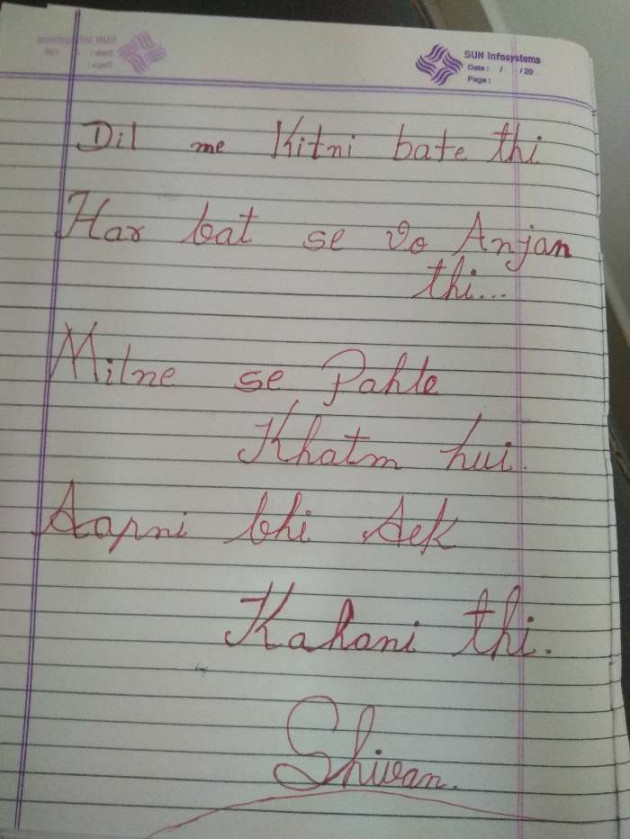 SUN Infosystems
Date : / /20
Page :
Dil me Kitni bate thi
Har bat se vo Anjan
thi...
Milne se Pahle
Khatm hui.
Aapni bhi Aek
Kahani thi.
Shivan.